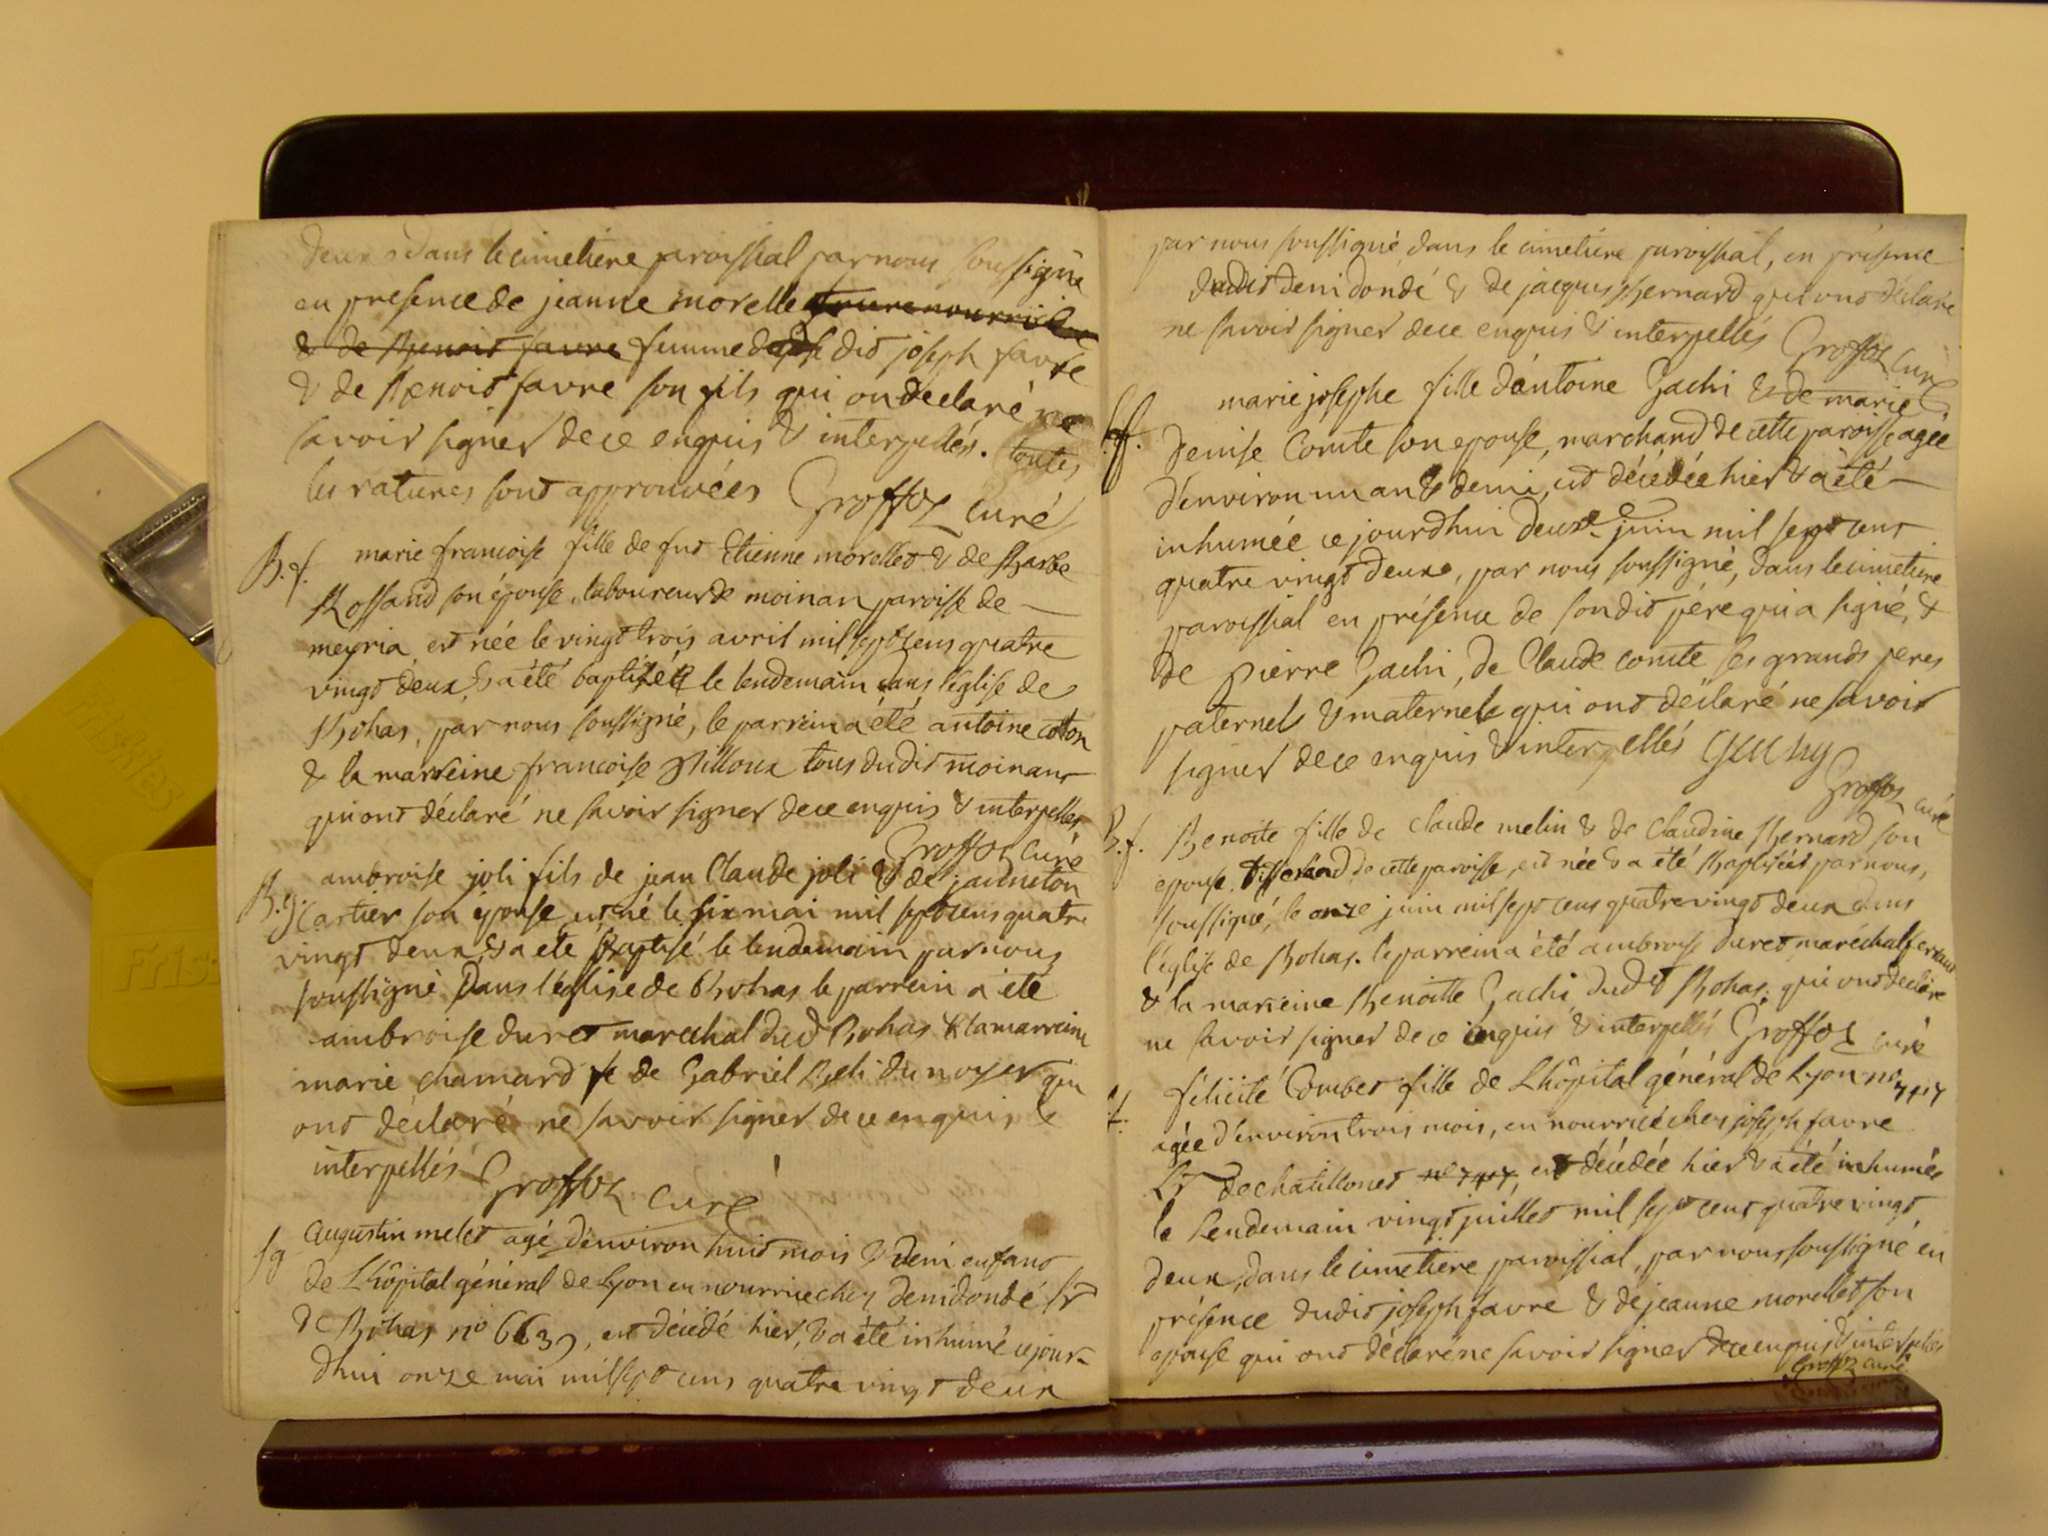 deux dans le cimetiere paroissial par nous soussigné
en presence de jeanne morelle
& de Benoit favre femme dudit joseph favre
& de Benoit favre son fils qui on declaré ne
savoir signer de ce enquis & interpellés. toutes
les ratures sont approuvées Groffoz curé
B. f. marie francoise fille de fut Etienne morellet & de Barbe
Rossand son épouse, laboureur de moinan paroisse de
meyria, est née le vingt trois avril mil sept cens quatre
vingt deux & a été baptizée le lendemain dans l'église de
Bohas, par nous soussigné, le parrein a été antoine coton
& la marreine francoise Pilloux tous dudit moinant
qui ont déclaré ne savoir signer de ce enquis & interpellés
Groffoz curé
B. g. ambroise joli fils de jean Claude joli & de jeanneton
Cartier son epouse est né le six mai mil sept cens quatre
vingt deux & a eté Baptisé le lendemain par nous
soussigné Dans l'église de Bohas le parrein a été
ambroise duret marechal dud Bohas & la marreine
marie chamard fe de Gabriel du noyer qui
ont déclaré ne savoir signer de ce enquis &
interpellés Groffoz curé
Sg augustin melet agé d'environ huit mois & demi enfant
de Lhôpital général de Lyon en nourrice chez deni dondé
de Bohas no 6639, est décédé hier, & a été inhumé ce jour-
dhui onze mai mil sept cens quatre vingt deux
par nous soussigné dans le cimetiere paroissial, en présence
dudit deni dondé & de jacques Bernard qui ont déclaré
ne savoir signer de ce enquis & interpellés Groffoz curé
S.f. marie josephe fille d'antoine Gachi & de marie
denise Comte son epouse, marchand de cette paroisse agée
d'environ un an & demi, est décédée hier & a été
inhumée ce jourdhui deux juin mil sept cent
quatre vingt deux, par nous soussigné, dans le cimetiere
paroissial en présence de son dit pére qui a signé, &
de pierre Gachi, de Claude comte ses grands peres
paternel & maternele qui ont déclaré ne savoir
signer de ce enquis & interpellés Gachy
Groffoz curé
B. f. Benoite fille de claude melin & de Claudine Bernard son
epouse tisserand de cette paroisse, est née & a été Baptisée par nous,
soussigné, le onze juin mil sept cens quatre vingt deux dans
l'église de Bohas. le parrein a été ambroise duret maréchal ferrant
& la marreine Benoitte Gachi dudt Bohas, qui ont declaré
ne savoir signer de ce enquis & interpellés Groffoz curé
f. félicité Combet fille de Lhôpital général de Lyon no 7417
agée d'environ trois mois, en nourrice chez joseph favre
de chatillonet no 7417, est décédée hier & a été inhumée
le Lendemain vingt juillet mil sept cent quatre vingt
deux, dans le cimetiere paroissial, par nous soussigné en
présence dudit joseph favre & de jeanne morellet son
epouse qui ont déclaré ne savoir signer de ce enquis & interpellés
Groffoz curé
Friskies
Fris